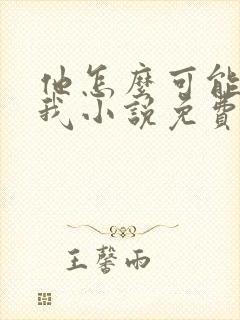 他怎麼可能
我小說免費
王馨雨